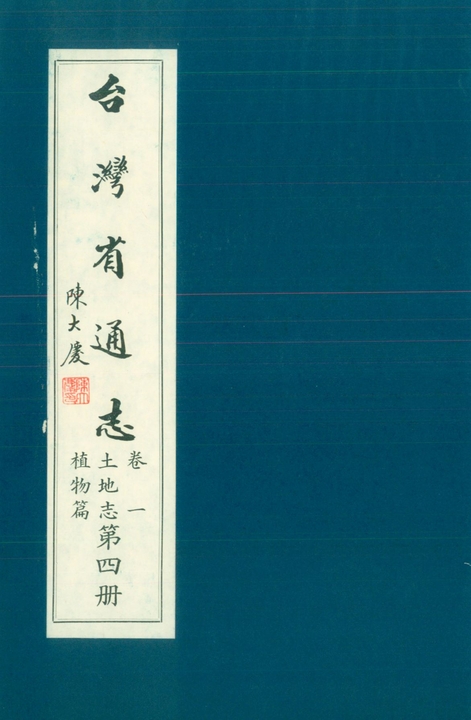 台灣省通志
陳大慶
卷一
土地志第四册
植物篇